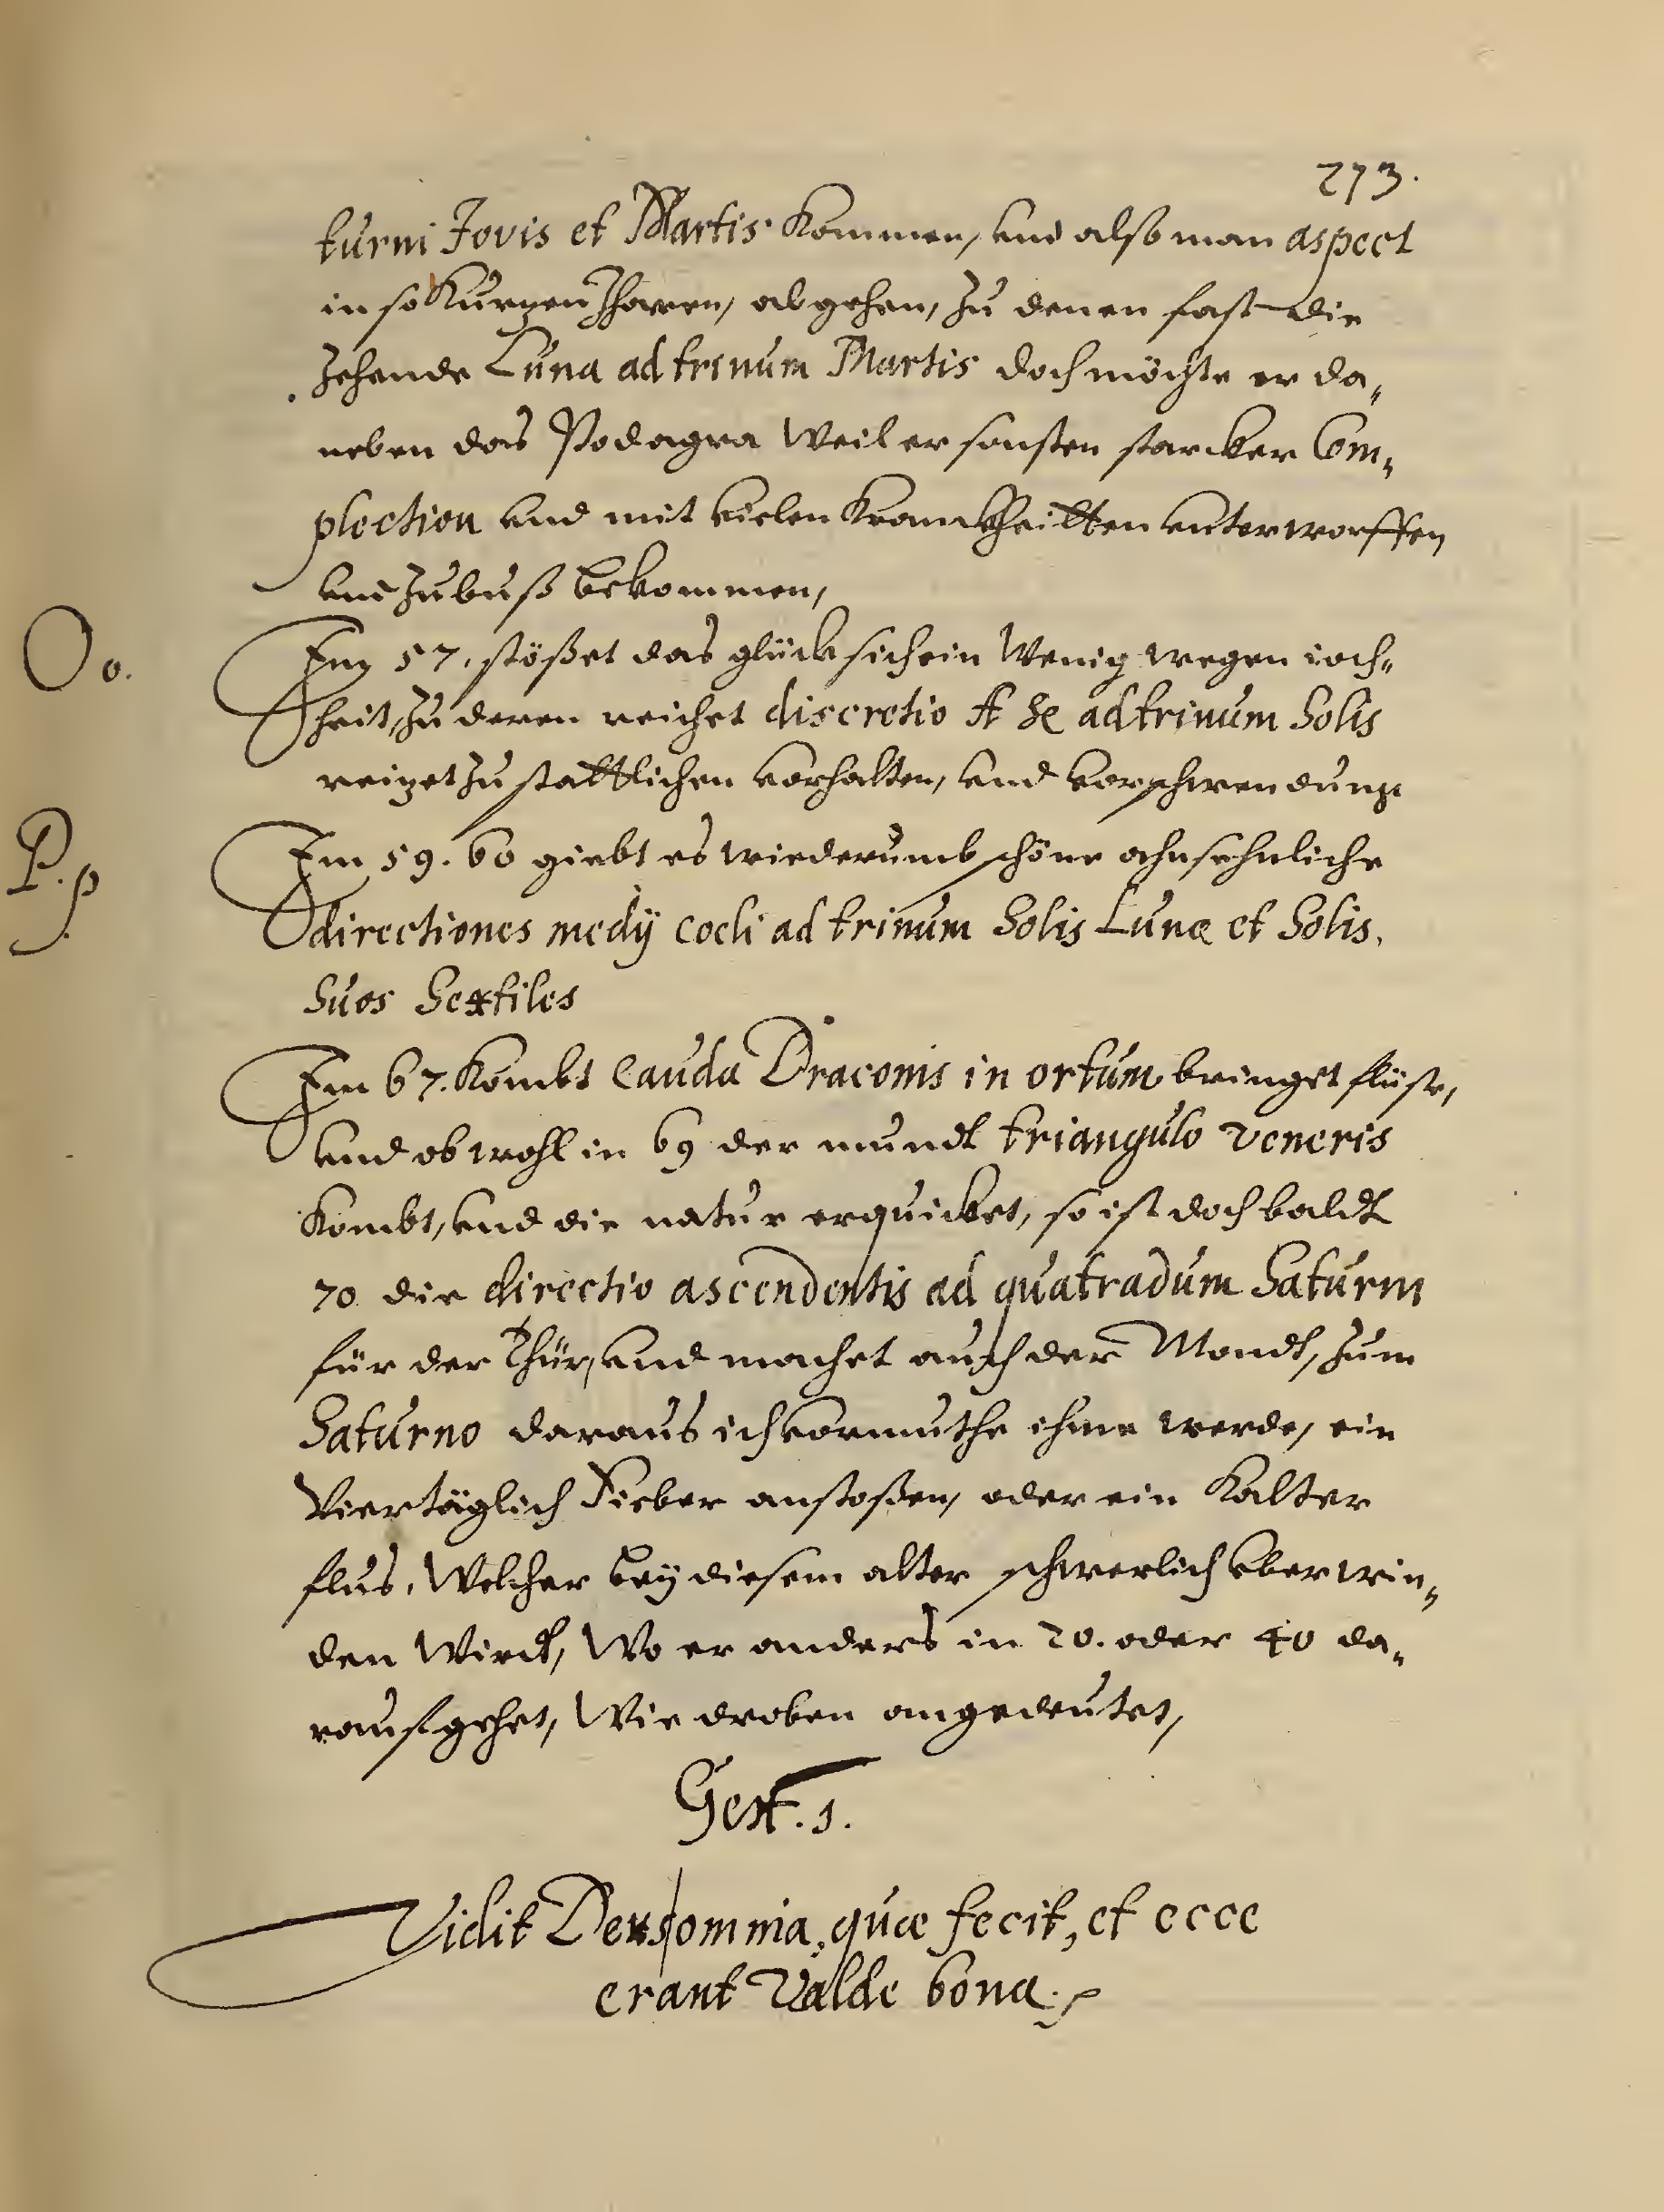 273.
turni Jovis et Martis Kommen, und also man aspect
in so Kurtzen Jharen, abgehen, zu denen fast die
zehende Luna ad trinum Martis doch möchte er da„
neben das Podagra Weil er sonsten starcker Com„
plection und mit vielen Kranckheitten unterworffen
und zubuß bekommen,
Oo.
Im 57. stößet das glück sich ein Wenig wegen
heit, zu deren reichet discretio ad trinum Solis
reitzet zu stattlichen vorhalten, und vorschwendung
P.p
Im 59. 60 giebt es wiederumb schöne ahnsehnliche
directiones medij coeli ad trinum Solis Lunæ et Solis.
Suos Sextiles
Im 67. Kombt Cauda Draconis in ortum bringet flüsse,
und ob wohl in 69 der mundt triangulo Veneris
Kombt, und die natur erquicket, so ist doch baldt
70 die directio ascendentis ad quatradum Saturni
für der Thür, und machet auch der Mondt, zum
Saturno daraus ich vormuthe ihme werde, ein
Viertäglich Fieber anstoßen, oder ein Kalter
flus. Welcher bey diesem alter schwerlich uberwin„
den Wirdt, Wo er anders in 20. oder 40 da„
rauf gehet, Wie droben angedeutet,
Vidit Deus somnia, quæ fecit, et ecce
erant Valde bona.